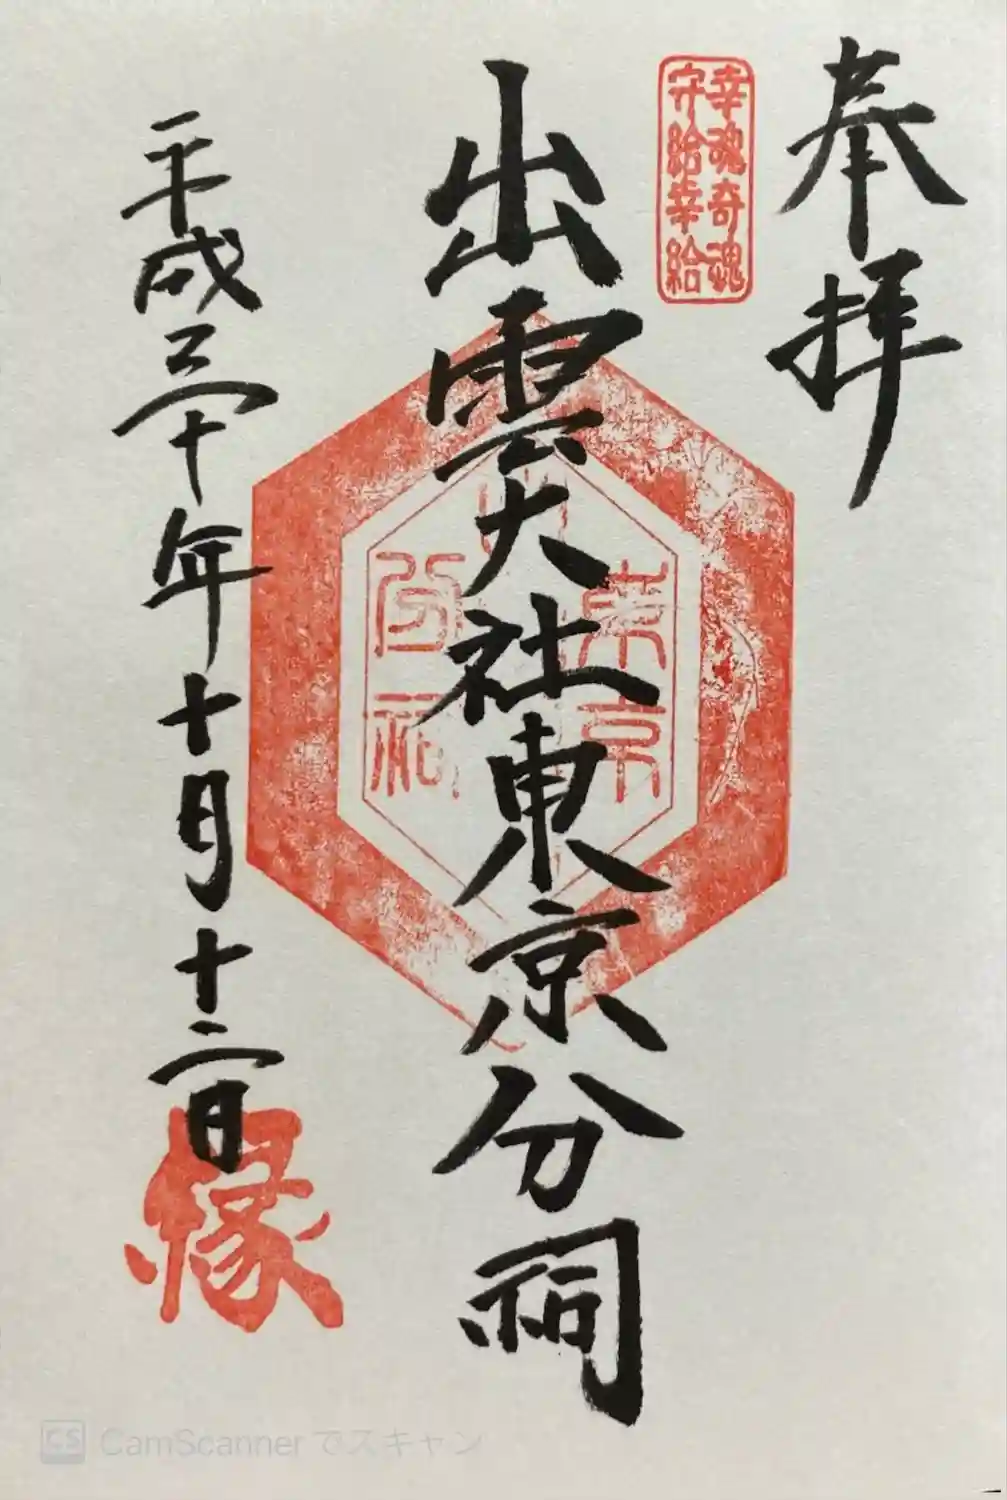 奉拝
幸魂奇魂
守給幸給
出雲大社東京分祠
東京
分祠
平成三十年十月十二日
縁
CS CamScanner でスキャン